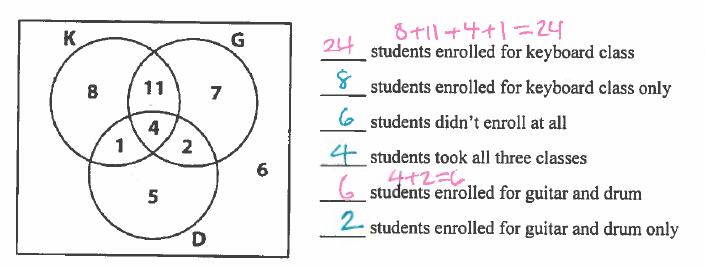 K
G
8
11
7
4
1
2
6
5
D
8+11+4+1=24
24 students enrolled for keyboard class
8 students enrolled for keyboard class only
6 students didn't enroll at all
4 students took all three classes
4+2=6
6 students enrolled for guitar and drum
2 students enrolled for guitar and drum only